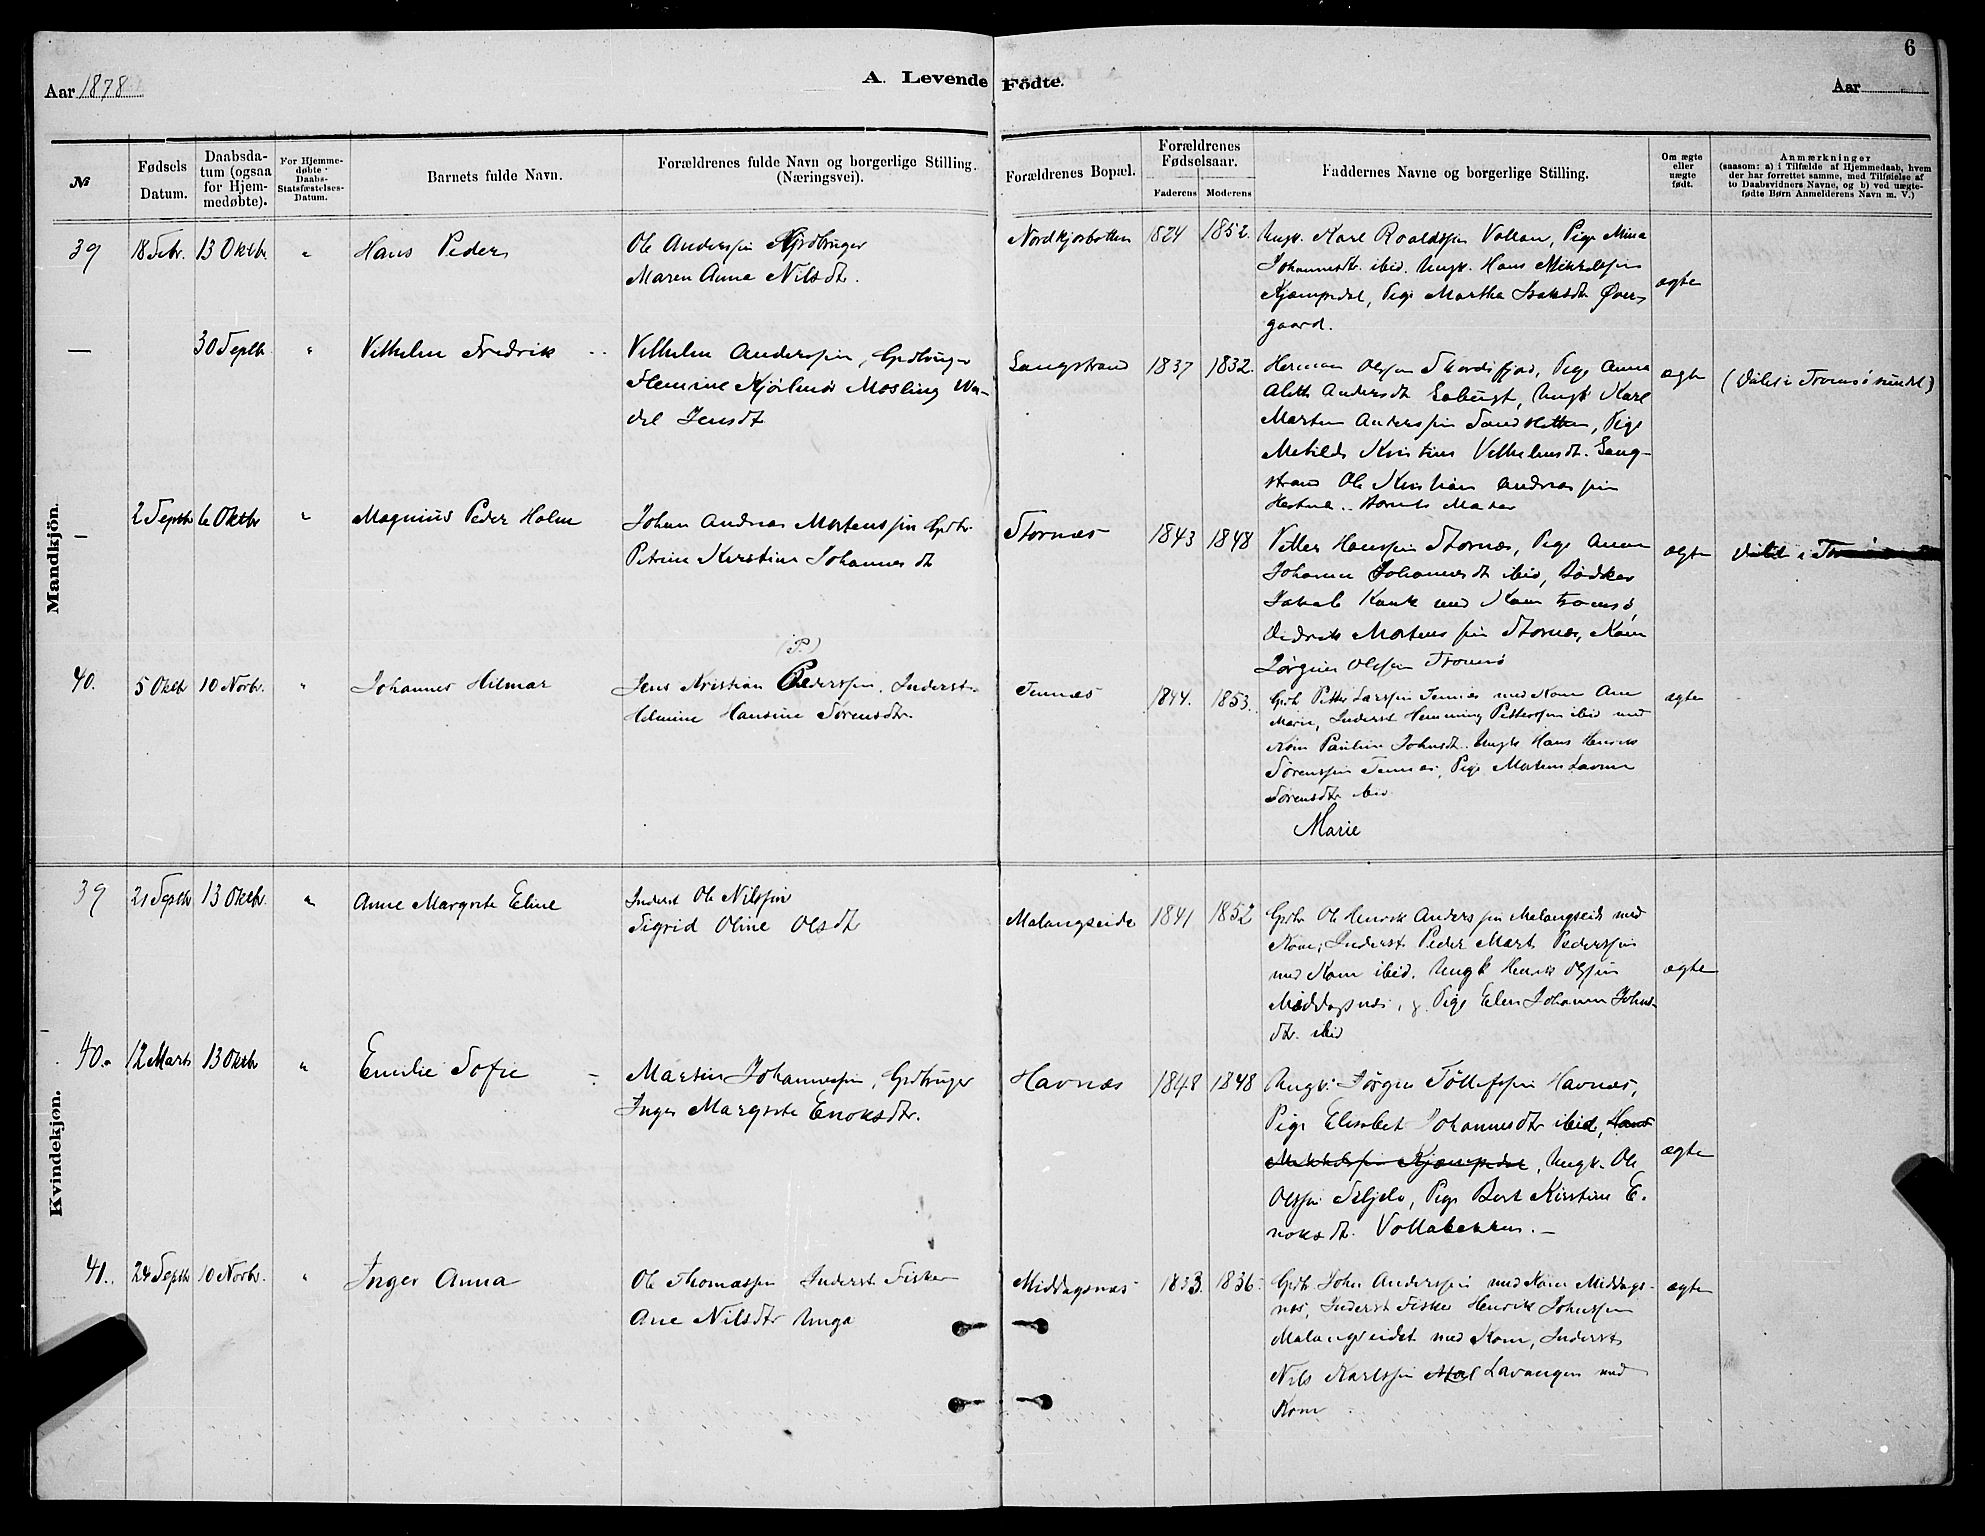 6
Aar 1878
A. Levende Födte.
Aar
№
Fødsels Datum.
Daabsdatum (ogsaa for Hjemmedøbte).
For Hjemmedøbte Daabs-Statsfæstelses-Datum.
Barnets fulde Navn.
Forældrenes fulde Navn og borgerlige Stilling. (Næringsvei).
Forældrenes Bopæl.
Forældrenes Fødselsaar.
Faderens
Moderens
Faddernes Navne og borgerlige Stilling.
Om ægte eller uægte født.
Anmærkninger
(saasom: a) i Tilfælde af Hjemmedaab, hvem
der har forrettet samme, med Tilføielse af
to Daabsvidners Navne, og b) ved uægte-
fødte Børn Anmelderens Navn m. V.)
Mandkjön.
39 18 Febr. 13 Oktbr. " Hans Peder
Ole Anderssen Grdbruger
Maren Anna Nilsdt.
Nordkjosbotten 1824 1852.
Ungk. Karl Roaldssen Vollan, Pige Mina
Johannesdtr. ibid. Ungk. Hans Mikkelsen
Kjæmpedal, Pige Martha Isaksdt Øvers
gaard.
ægte
— 30 Septb " Vilhelm Fredrik
Vilhelm Anderssen, Grdbruger
Hemine Kjørlnø Mosling We-
del Jensdt
Sangstrand 1837 1832.
Herman Olssen Skordsfjord, Pige Anna
Aleth Andersdt ibid, Ungk Karl
Morten Anderssen
Pige
Metilde Kristine Vilhelmsdt. Sang-
strand Ole Kristian Andreassen
ægte
(Døbt i Tromsøsundet)
— 2 Septb 6 Oktbr " Magnius Peder Holm
Johan Andreas Mortenssen Grdb.
Petrine Kirstine Johannesdt
Stornæs 1843 1848
Petter Hanssen Stornæs, Pige Anne
Johanna Johannesdt ibid, Bødker
Jakob Kank med Kone Tromsø,
Didrik Mortenssen Stornæs, Kone
Jørgine Olssen Tromsø
ægte
Døbt i
40. 5 Oktb 10 Novbr. " Johannes Hilmar
(P.)
Jens Kristian Pederssen, Inderst
Helmine Hansine Sørensdtr.
Tennæs 1844. 1853.
Grdb Petter Larssen Tennæs med Kone Ane
Marie, Inderst Hemming Petterssen ibid med
Kone Pauline Johnsdt. Ungk Hans Henrik
Sørenssen Tennæs, Pige Martine Lavine
Sørensdtr ibid
Marie
ægte
Kvindekjön.
39 21 Septb 13 Oktbr. " Anne Margrete Eline
Inderst Ole Nilssen
Sigrid Oline Olsdtr
Malangseide 1841 1852
Grdb Ole Henrik Anderssen Malangseide med
Kone, Inderst Peder Mart Pederssen
med Kone ibid. Ungk Henrik Olssen
Middagsnæs, Pige Elen Johanna Johns-
dtr. ibid
ægte
40. 12 Marts 13 Oktbr " Emilie Sofie
Martin Johannessen, Grdbruger
Inger Margrete Enoksdtr.
Havnæs 1848 1848
Ungk. Jørgen Tøllefssen Havnæs,
Pige Elisabet Johannesdtr ibid, Hans
Mikkelssen Kjæmpedal, Ungk. Ole
Olssen Seljelv, Pige Berit Kirstine E-
noksdt. Vollabakken.—
ægte
41. 24 Septb 10 Novbr. " Inger Anna
Ole Thomassen Inderst Fisker
Ane Nilsdtr Unga
Middagsnæs 1833. 1836.
Grdb John Anderssen med Kone Middags-
næs, Inderst Fisker Henrik Johnssen
Malangseidet med Kone, Inderst
Nils Karlssen Mal Lavangen med
Kone
ægte